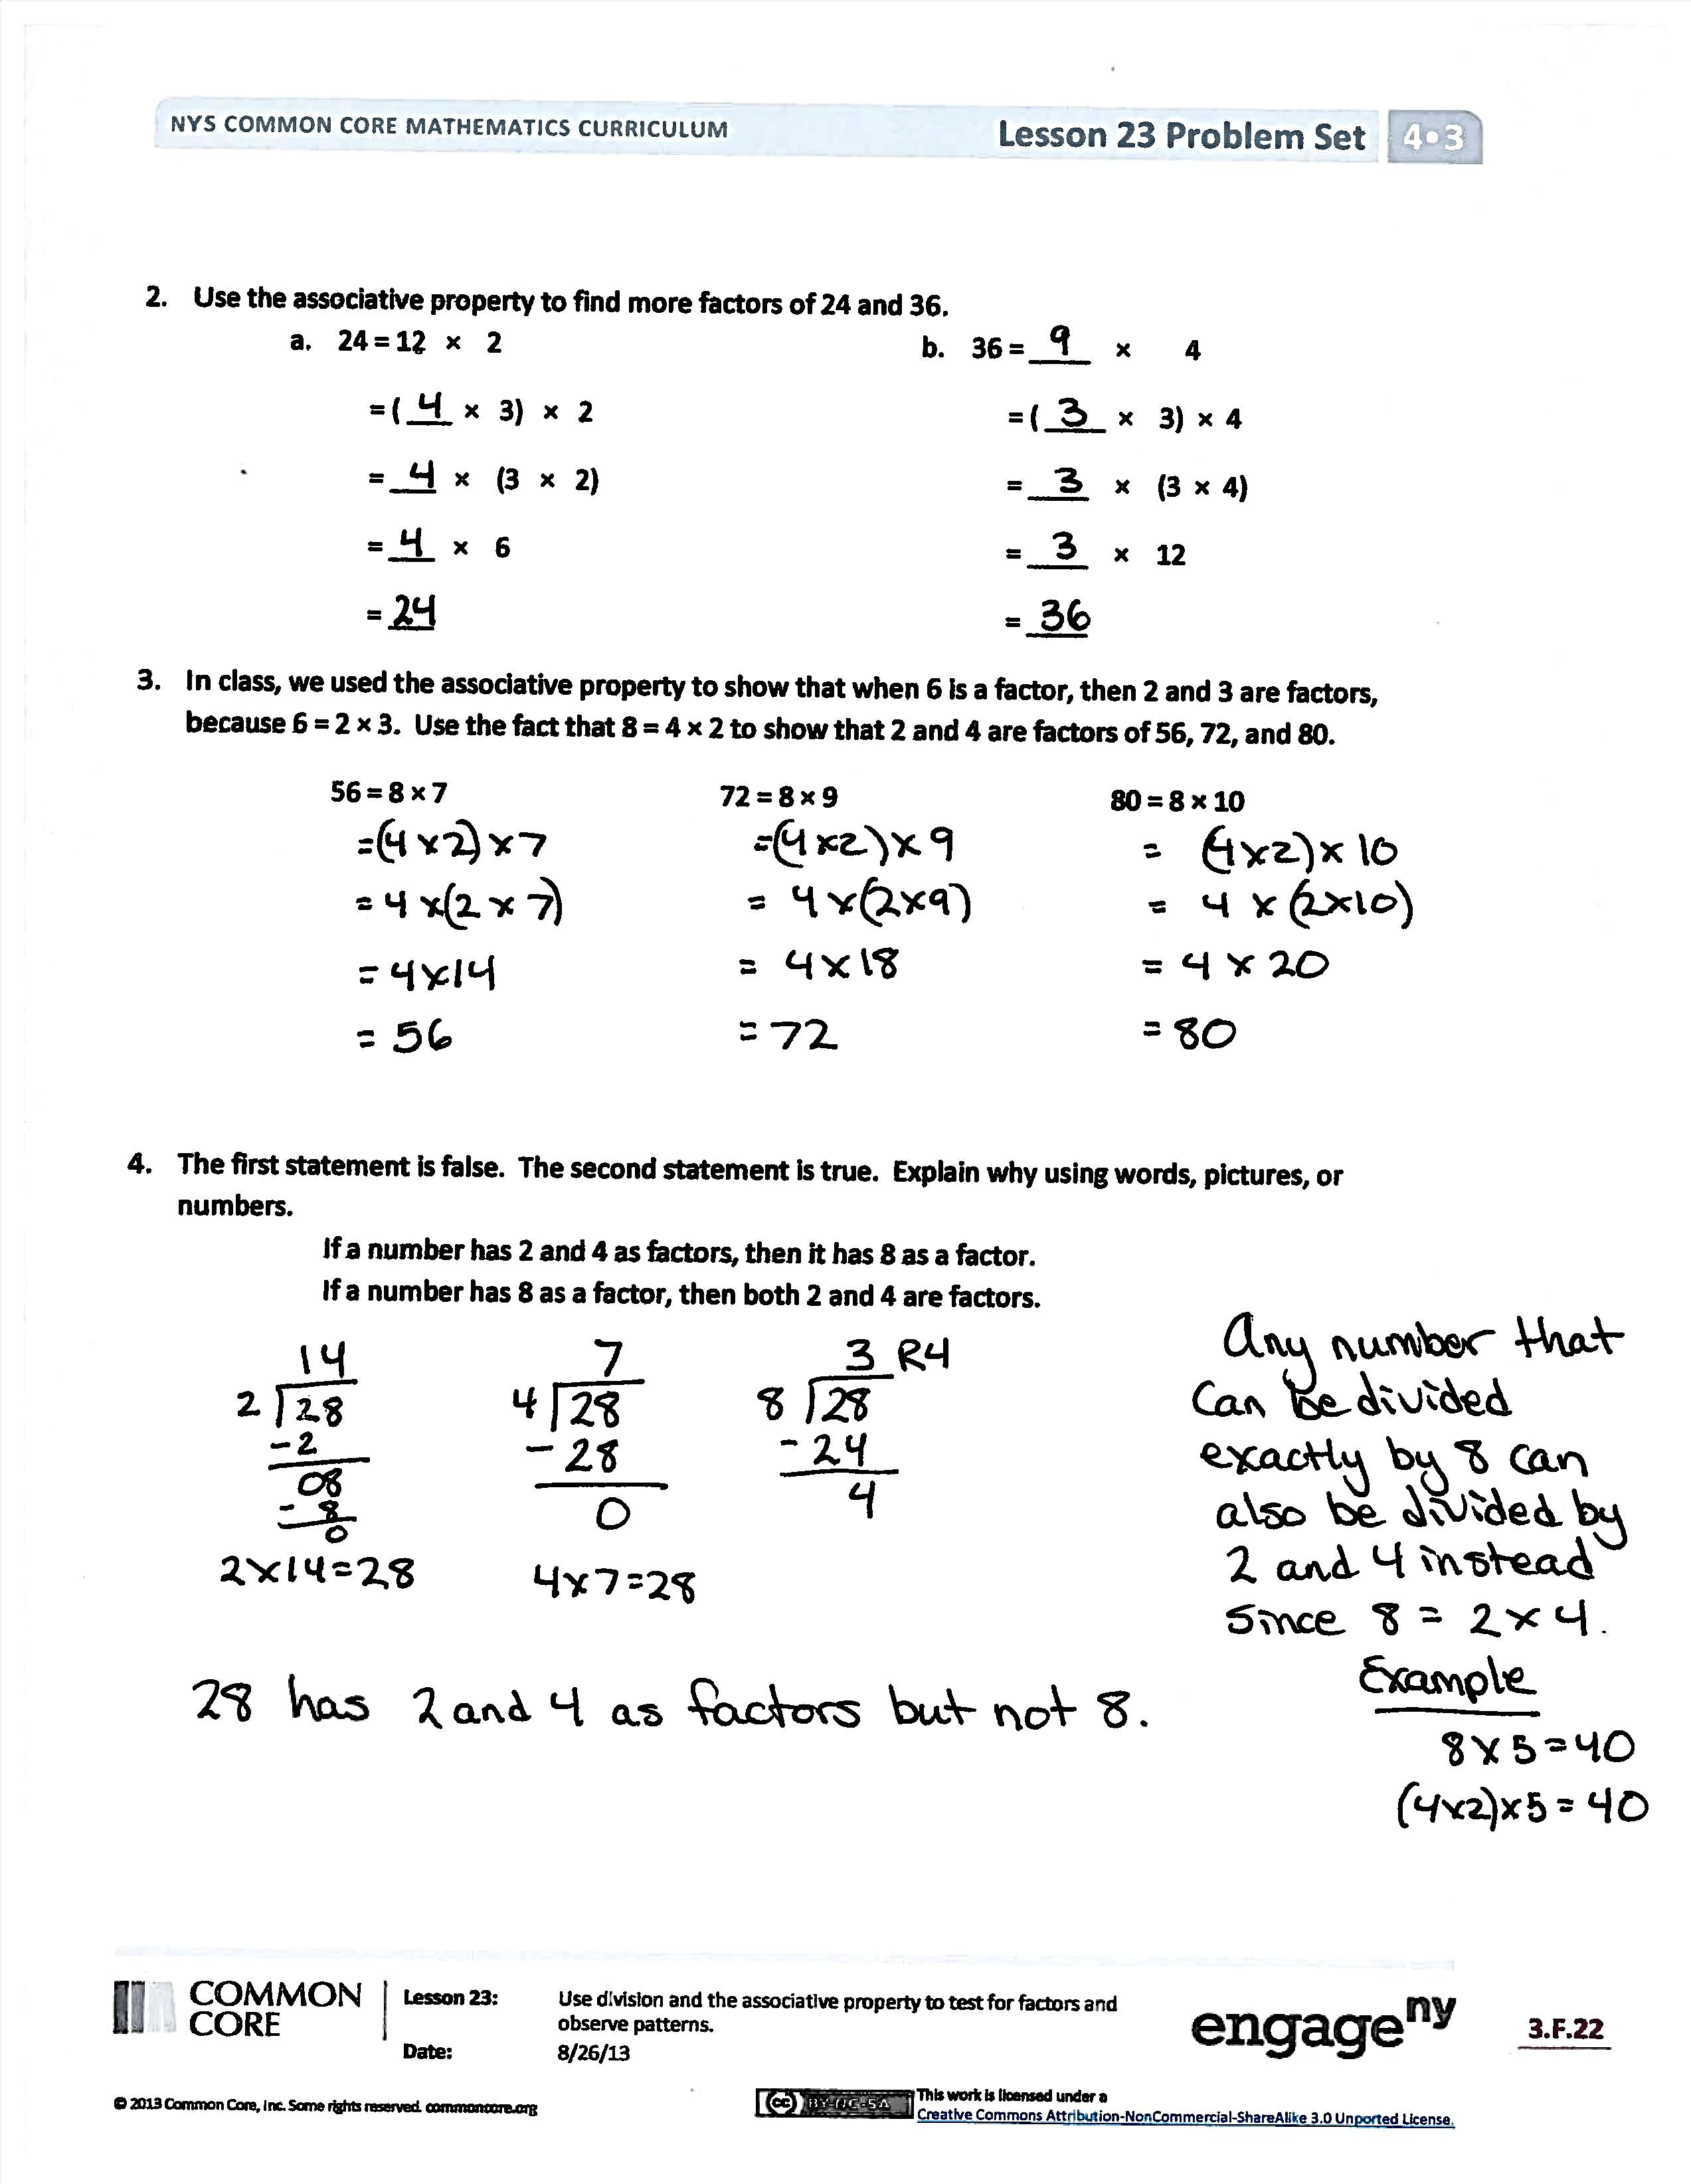 NYS COMMON CORE MATHEMATICS CURRICULUM
Lesson 23 Problem Set
4•3
2. Use the associative property to find more factors of 24 and 36.
a. 24 = 12 × 2
= ( 4 × 3) × 2
= 4 × (3 × 2)
= 4 × 6
= 24
b. 36 = 9 × 4
= ( 3 × 3) × 4
= 3 × (3 × 4)
= 3 × 12
= 36
3. In class, we used the associative property to show that when 6 is a factor, then 2 and 3 are factors,
because 6 = 2 × 3. Use the fact that 8 = 4 × 2 to show that 2 and 4 are factors of 56, 72, and 80.
56 = 8 × 7
=(4 × 2) × 7
= 4 × (2 × 7)
= 4×14
= 56
72 = 8 × 9
=(4 ×2) × 9
= 4 × (2×9)
= 4 × 18
= 72
80 = 8 × 10
= (4×2) × 10
= 4 × (2×10)
= 4 × 20
= 80
4. The first statement is false. The second statement is true. Explain why using words, pictures, or
numbers.
If a number has 2 and 4 as factors, then it has 8 as a factor.
If a number has 8 as a factor, then both 2 and 4 are factors.
14
2 28
-2
08
- 8
0
2×14=28
7
4 28
- 28
0
4×7=28
3 R4
8 28
- 24
4
28 has 2 and 4 as factors but not 8.
Any number that
can be divided
exactly by 8 can
also be divided by
2 and 4 instead
since 8 = 2 × 4.
Example
8 × 5 = 40
(4×2)×5 = 40
COMMON
CORE
Lesson 23:
Use division and the associative property to test for factors and
observe patterns.
Date:
8/26/13
engage ny
3.F.22
© 2013 Common Core, Inc. Some rights reserved. commoncore.org
cc BY-NC-SA
This work is licensed under a
Creative Commons Attribution-NonCommercial-ShareAlike 3.0 Unported License.